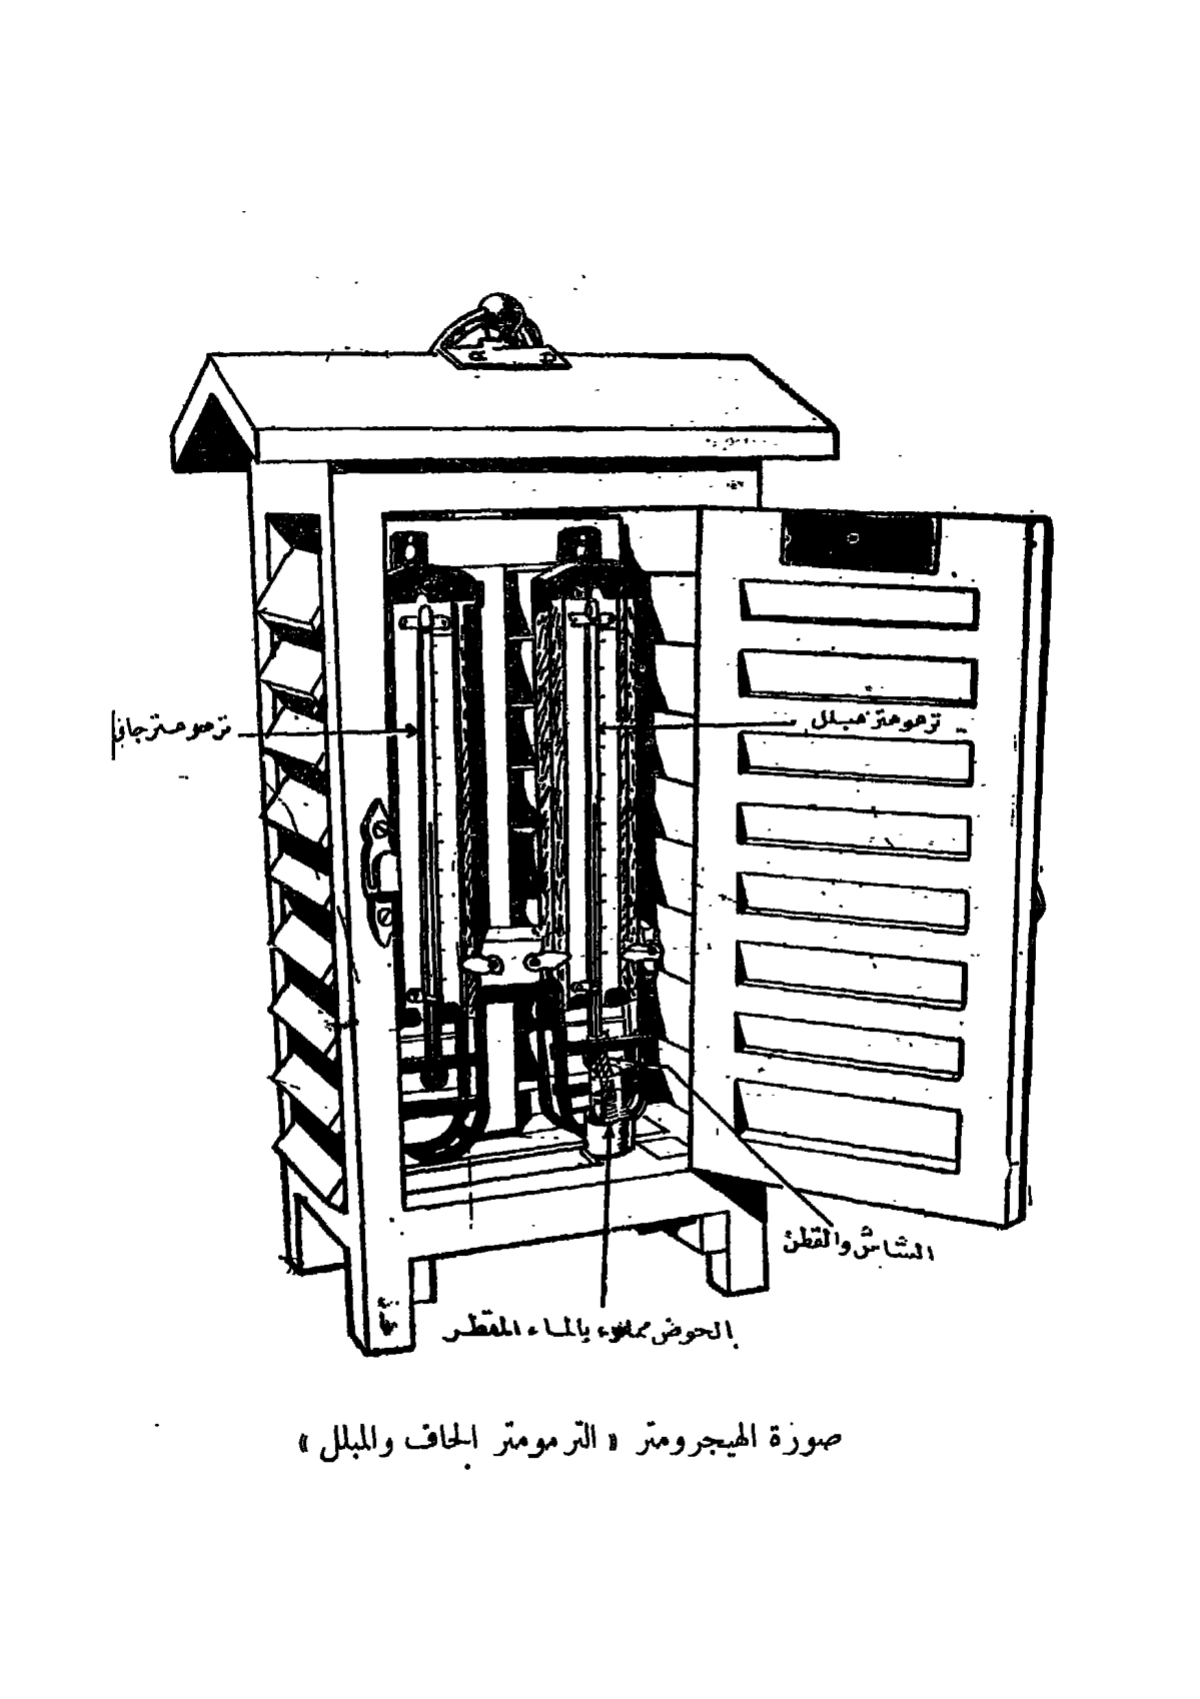 ترمومتر جاف
ترمومتر مبلل
الشاش والقطن
الحوض مملوء بالماء المقطر
صورة الهيجرومتر « الترمومتر الجاف والمبلل »